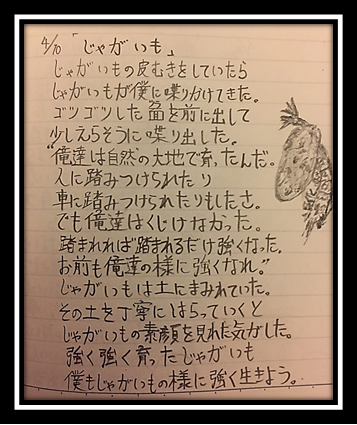 4/10 「じゃがいも」
じゃがいもの皮むきをしていたら
じゃがいもが僕に喋りかけてきた。
ゴツゴツした面を前に出して
少しえらそうに喋り出した。
"俺達は自然の大地で育ったんだ。
人に踏みつけられたり
車に踏みつけられたりもしたさ。
でも俺達はくじけなかった。
踏まれれば踏まれるだけ強くなった。
お前も俺達の様に強くなれ。"
じゃがいもは土にまみれていた。
その土を丁寧にはらっていくと
じゃがいもの素顔を見れた気がした。
強く強く育ったじゃがいも
僕もじゃがいもの様に強く生きよう。